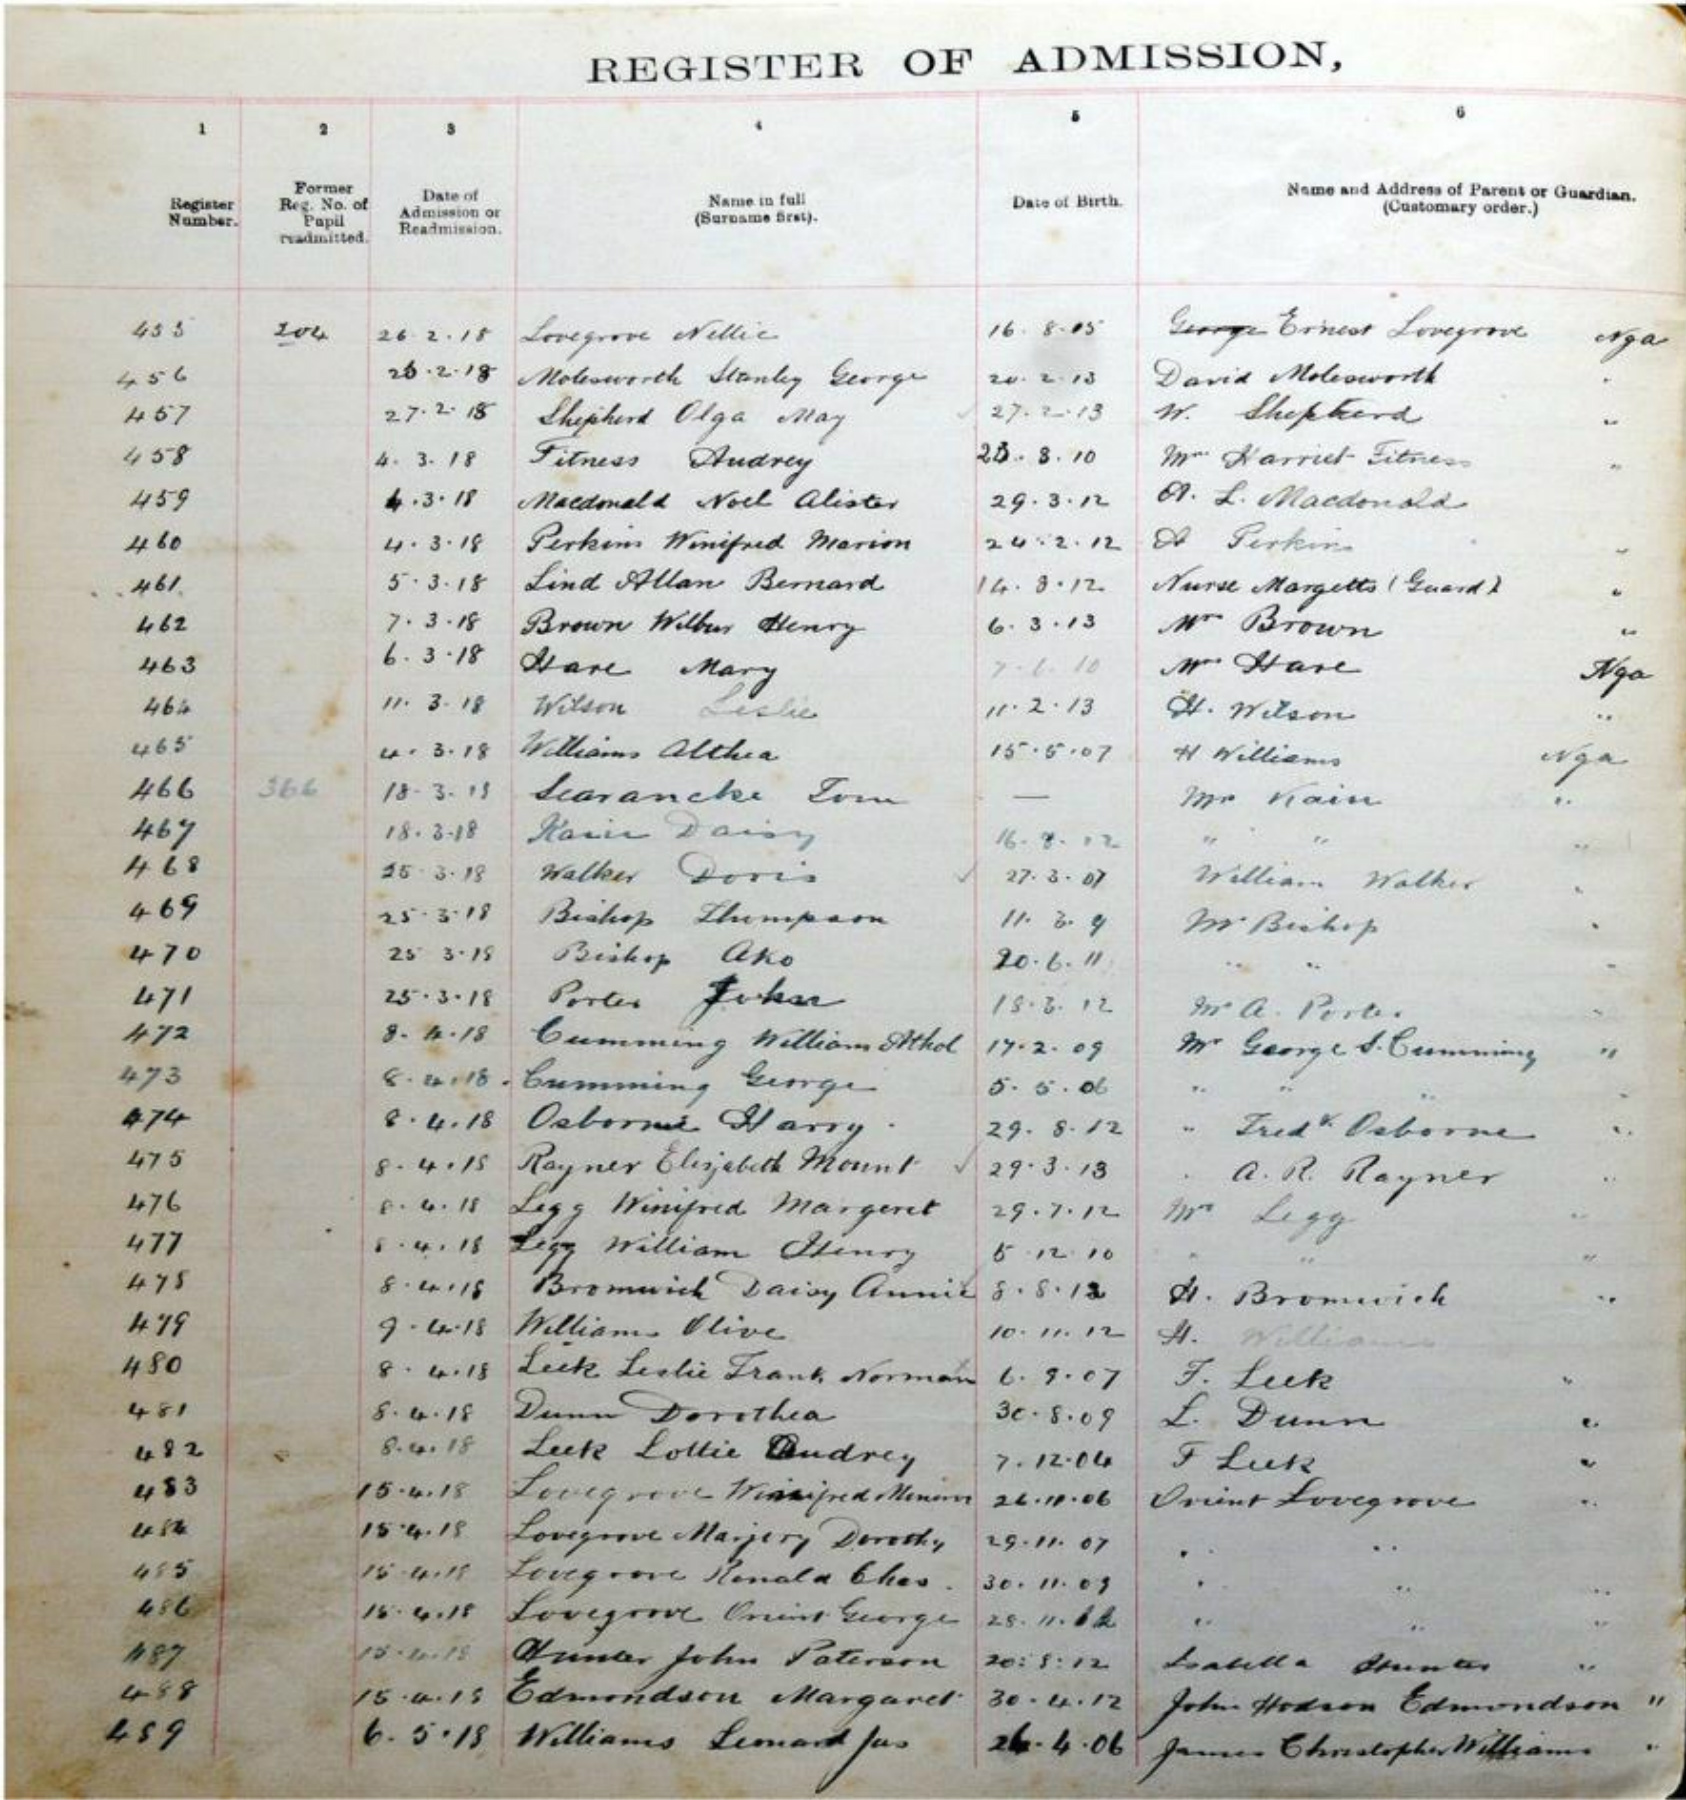 REGISTER OF ADMISSION,
1 2 3 4 5 6
Register Number. Former Reg. No. of Pupil readmitted. Date of Admission or Readmission. Name in full (Surname first). Date of Birth. Name and Address of Parent or Guardian. (Customary order.)
455 204 26.2.18 Lovegrove Nellie 16.8.05 George Ernest Lovegrove Nga
456 26.2.18 Molesworth Stanley George 20.2.13 David Molesworth "
457 27.2.18 Shepherd Olga May 27.2.13 W. Shepherd "
458 4.3.18 Fitness Audrey 23.8.10 Mrs Harriet Fitness "
459 4.3.18 Macdonald Noel Alister 29.3.12 A. L. Macdonald
460 4.3.18 Perkins Winifred Marion 24.2.12 A Perkins "
461 5.3.18 Lind Allan Bernard 14.3.12 Nurse Margetts (Guard) "
462 7.3.18 Brown Wilbur Henry 6.3.13 Mr Brown "
463 6.3.18 Hare Mary 7.6.10 Mrs Hare Nga
464 11.3.18 Wilson Leslie 11.2.13 H. Wilson "
465 4.3.18 Williams Althea 15.5.07 H Williams Nga
466 366 18.3.18 Searancke Tom — Mr Kain "
467 18.3.18 Kain Daisy 16.8.12 " " "
468 25.3.18 Walker Doris 27.3.07 William Walker "
469 25.3.18 Bishop Thompson 11.3.9 Mr Bishop "
470 25 3.18 Bishop Ako 20.6.11 " " "
471 25.3.18 Porter John 18.3.12 Mr A. Porter "
472 8.4.18 Cumming William Athol 17.2.09 Mr George S. Cumming "
473 8.4.18 Cumming George 5.5.06 " " " "
474 8.4.18 Osborne Harry 29.8.12 " Fredk Osborne "
475 8.4.18 Rayner Elizabeth Mount 29.3.13 " A. R. Rayner "
476 8.4.18 Legg Winifred Margeret 29.7.12 Mrs Legg "
477 8.4.18 Legg William Henry 5 12 10 " " "
478 8.4.18 Bromwich Daisy Annie 8.8.12 H. Bromwich "
479 9.4.18 Williams Olive 10.11.12 H. Williams
480 8.4.18 Leek Leslie Frank Norman 6.9.07 F. Leek "
481 8.4.18 Dunn Dorothea 30.8.09 L. Dunn "
482 8.4.18 Leek Lottie Audrey 7.12.04 F Leek "
483 15.4.18 Lovegrove Winifred 26.11.06 Orient Lovegrove "
484 15.4.18 Lovegrove Marjery Dorothy 29.11.07 " "
485 15.4.18 Lovegrove Ronald Chas. 30.11.09 " " "
486 15.4.18 Lovegrove Orient George 28.11. " " "
487 15.4.18 Hunter John Paterson 20.8.12 Isabella Hunter "
488 15.4.18 Edmondson Margaret 30.4.12 John Hodson Edmondson "
489 6.5.18 Williams Leonard Jas 26.4.06 James Christopher Williams "